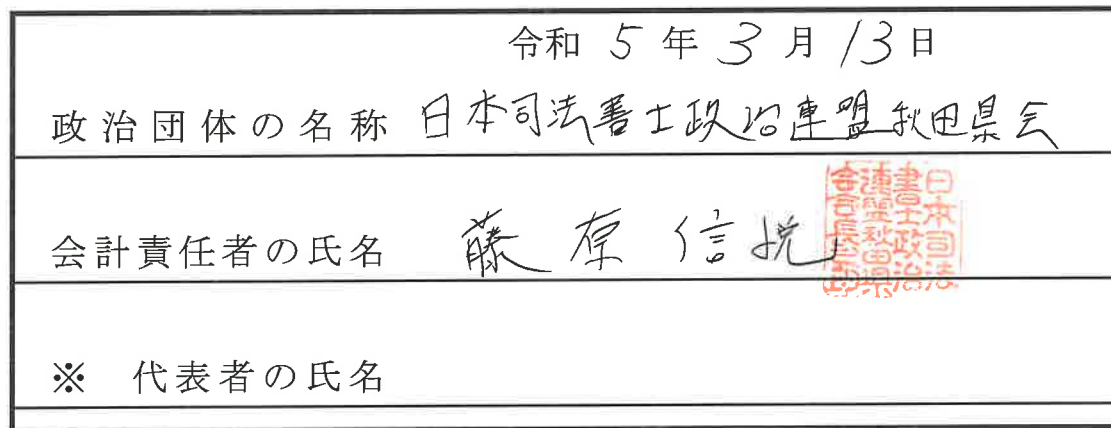 令和 5 年 3 月 13 日
政治団体の名称 日本司法書士政治連盟秋田県会
会計責任者の氏名 藤原信悦
日本司法
書士政治
連盟秋田県
会会長之印
※ 代表者の氏名